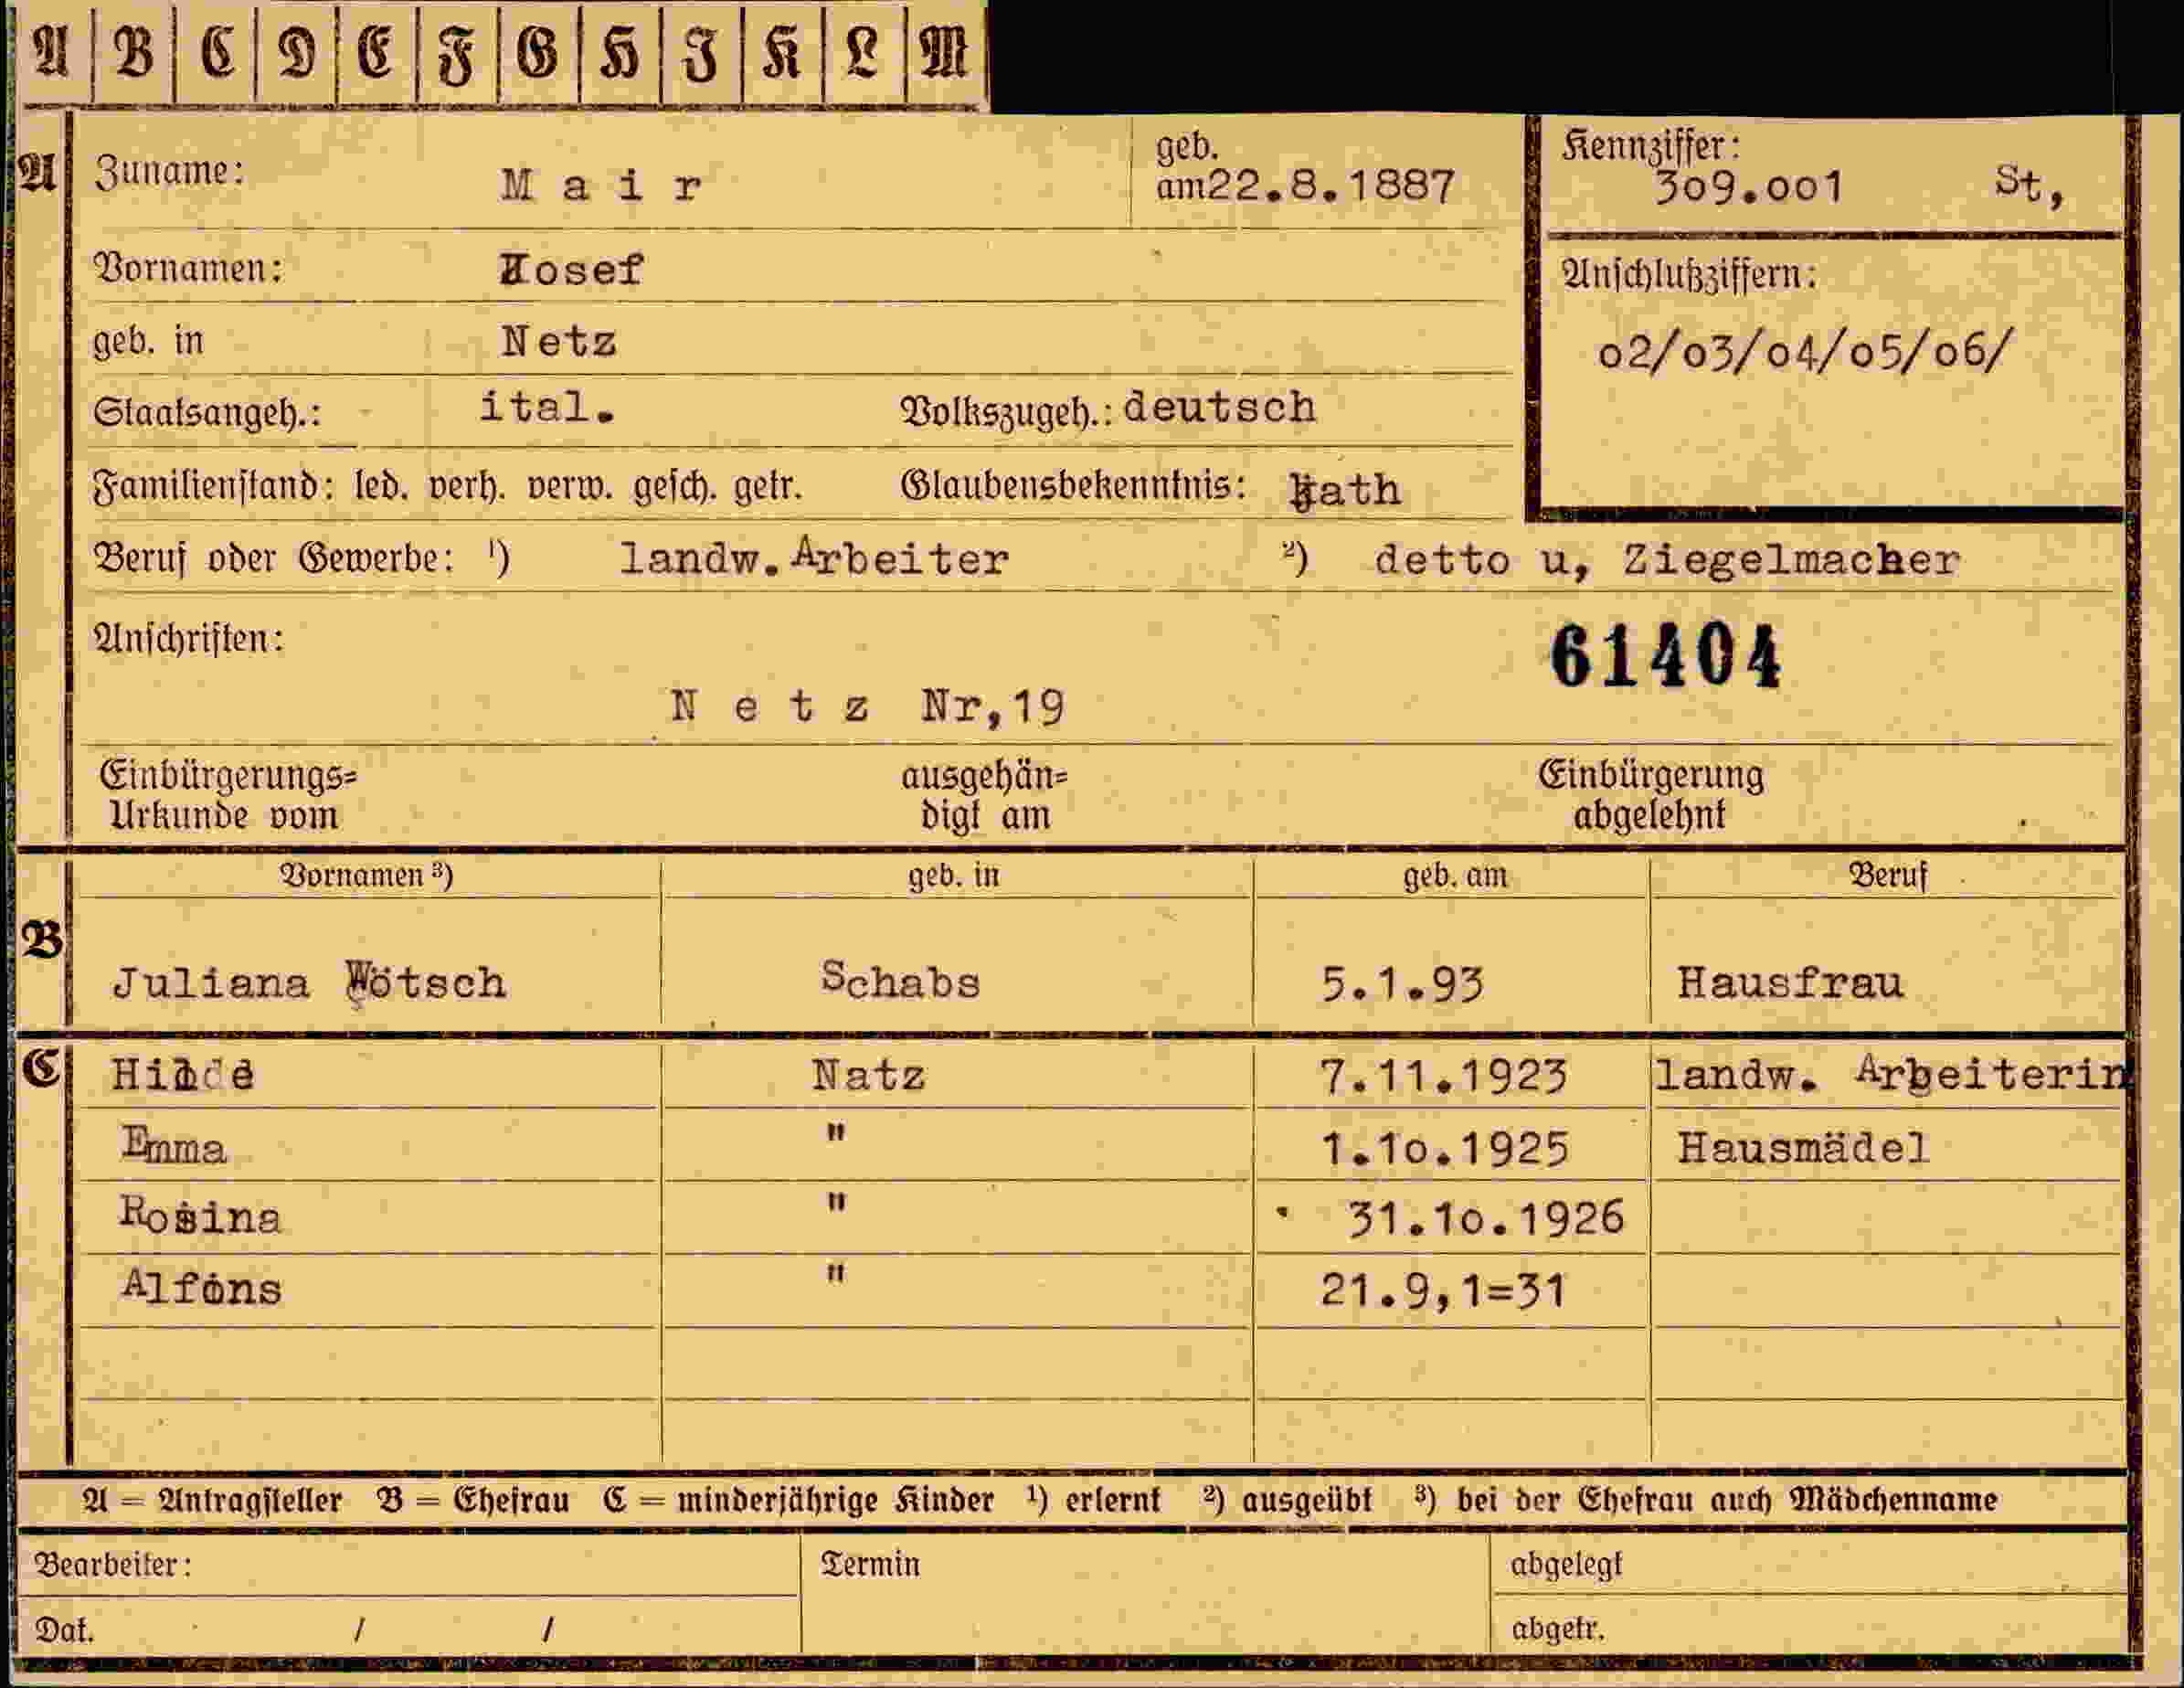 A B C D E F G H I K L M
A Zuname: Mair geb. am 22.8.1887 Kennziffer: 309.001 St,
Vornamen: Josef Anschlußziffern:
geb. in Netz 02/03/04/05/06/
Staatsangeh.: ital. Volkszugeh.: deutsch
Familienstand: led. verh. verw. gesch. getr. Glaubensbekenntnis: kath
Beruf oder Gewerbe: 1) landw. Arbeiter 2) detto u, Ziegelmacher
Anschriften: 61404
Netz Nr,19
Einbürgerungs= ausgehän= Einbürgerung
Urkunde vom digt am abgelehnt
Vornamen 3) geb. in geb. am Beruf
B Juliana Wötsch Schabs 5.1.93 Hausfrau
C Hilde Natz 7.11.1923 landw. Arbeiterin
Emma " 1.10.1925 Hausmädel
Rosina " 31.10.1926
Alfons " 21.9,1=31
A = Antragsteller B = Ehefrau C = minderjährige Kinder 1) erlernt 2) ausgeübt 3) bei der Ehefrau auch Mädchenname
Bearbeiter: Termin abgelegt
Dat. / / abgetr.